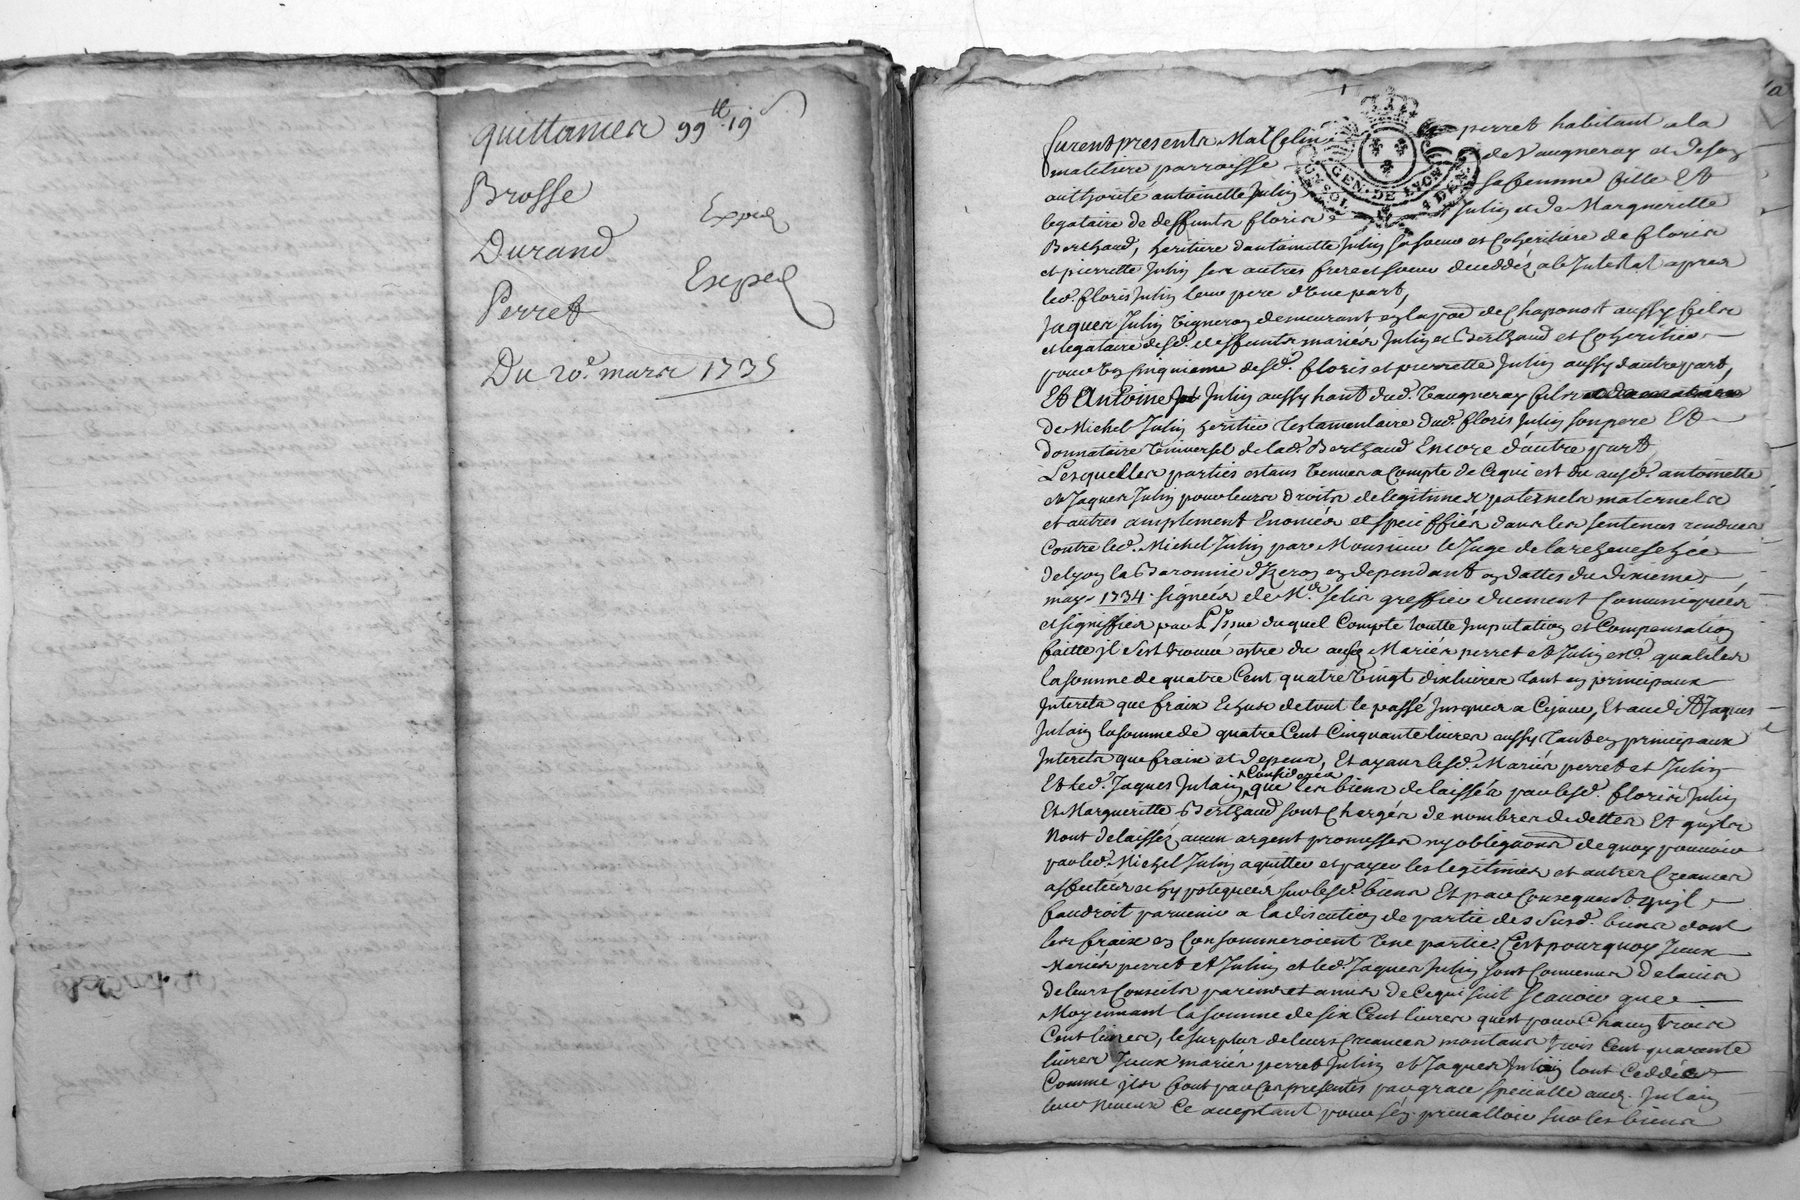 quittances 99tt 19s
Brosse
Durand Exped
Perret Exped
Du 20e. mars 1735
furent presents Mathelin perret habitant a la
mateliere parroisse de Vaugneray et de son
GEN. DE LYON
authorité antoinette Julin sa femme fille Et
legataire de deffunts floris Julin et de Margueritte
Berthaud, heritiere dantoinette Julin sa soeur et Coheritiere de floris
et pierrette Julin ses autres frere et soeur deceddéz ab Intestat apres
led. floris Julin leur pere d'Une part,
Jaques Julin Vigneron demeurant en la pad de Chaponost aussy fils
et legataire desd. deffunts mariés Julin et Berthaud et Coheritier
pour Un Cinquieme desd. floris et pierrette Julin aussy dautre part,
Et Antoine Julin aussy hant dud. Vaugneray fils
de Michel Julin heritier testamentaire dud. floris Julin son pere Et
donnataire Universel de lad. Berthaud Encore d'autre part,
Lesquelles parties estans Venues a Compte de Ce qui est du ausd. antoinette
et Jaques Julin pour leurs droits de legitimes paternels maternels
et autres amplement Enoncés et speciffiés dans les sentences rendues
Contre led. Michel Julin par Monsieur le Juge de
de Lyon la Baronnie d'Yzeron en dependant en dattes du dixieme
may 1734. signées de Mr. greffier duement Communiquées
et signiffiés par L'Issue duquel Compte toutte Imputation et Compensation
faitte jl s'est trouvé estre du ausd Mariés perret et Julin esd. qualités
la somme de quatre Cent quatre Vingt dix livres tant en principaux
Interets que fraix Echus de tout le passé Jusques a Cejour, Et aud. Jaques
Julin la somme de quatre Cent Cinquante livres aussy tant en principaux
Interets que fraix et depens, Et ayans lesd. Mariés perret et Julin
Et led. Jaques Julin Consideré que les biens delaissés par lesd. floris Julin
Et Margueritte Berthaud sont Chargés de nombres de dettes Et quils
Nont delaissez aucun argent promesses ny obligations de quoy pouvoir
par led. Michel Julin aquitter et payer les legitimes et autres Creances
affectées et hypotequées sur lesd. biens Et par Consequent quil
faudroit parvenir a la discution de partie des susd. biens dont
les fraix en Consommeroient Une partie. C'est pourquoy Iceux
Mariés perret et Julin et led. Jaques Julin sont Convenus de lavis
de leurs Conseils parens et amis de Cequi suit scavoir que
Moyennant la somme de six Cent livres quest pour Chacun trois
Cent livres, le surplus de leurs Creances montant trois Cent quarante
livres Iceux mariés perret Julin et Jaques Julin l'ont Ceddé
Comme jls font par Ces presentes par grace specialle aud. Julin
leur Neveux Ce acceptant pour s'en prevalloir sur les biens